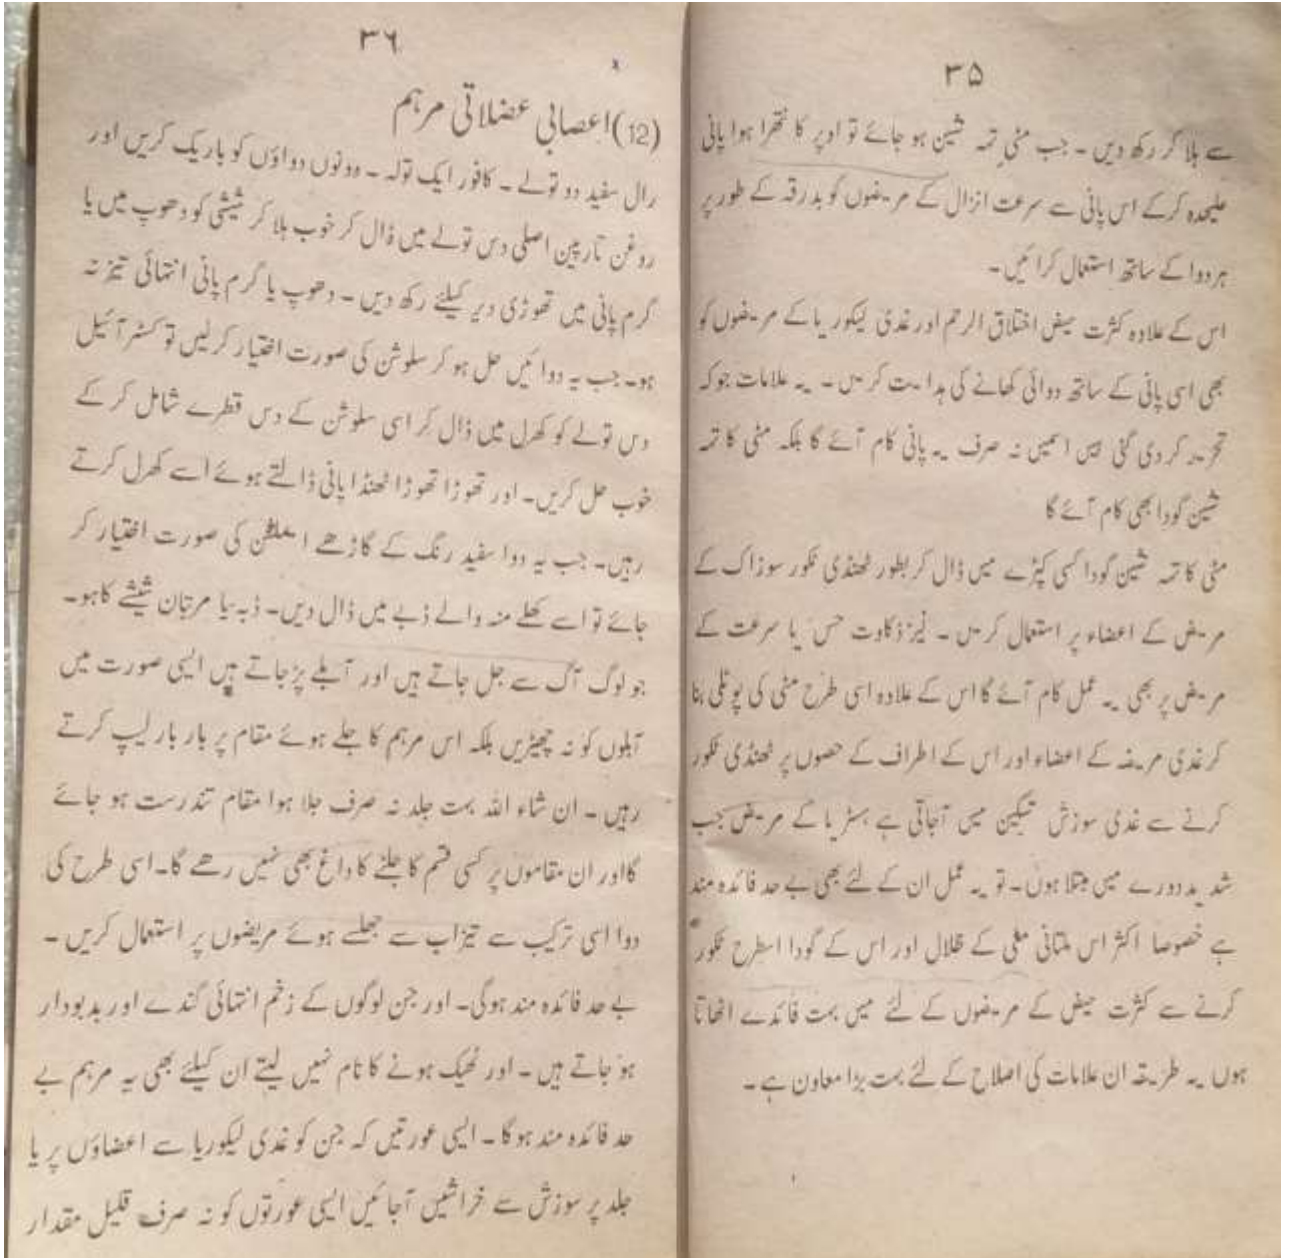 ۳۵
سے ہلا کر رکھ دیں ۔ جب مٹی تہہ نشین ہو جائے تو اوپر کا نتھرا ہوا پانی
علیحدہ کرکے اس پانی سے سرعت انزال کے مریضوں کو بدرقہ کے طور پر
ہر دوا کے ساتھ استعمال کرائیں۔
اس کے علاوہ کثرت حیض اختلاق الرحم اور غدی لیکوریا کے مریضوں کو
بھی اسی پانی کے ساتھ دوائی کھانے کی ہدایت کریں ۔ یہ علامات جو کہ
تحریر کر دی گئی ہیں اسمیں نہ صرف یہ پانی کام آئے گا بلکہ مٹی کا تہہ
نشین گودا بھی کام آئے گا
مٹی کا تہہ نشین گودا کسی کپڑے میں ڈال کر بطور ٹھنڈی ٹکور سوزاک کے
مریض کے اعضاء پر استعمال کریں ۔ نیز ذکاوت حس یا سرعت کے
مریض پر بھی یہ عمل کام آئے گا اس کے علاوہ اسی طرح مٹی کی پوٹلی بنا
کر غدی مریضہ کے اعضاء اور اس کے اطراف کے حصوں پر ٹھنڈی ٹکور
کرنے سے غدی سوزش تسکین میں آجاتی ہے ہسٹریا کے مریض جب
شدید دورے میں مبتلا ہوں۔ تو یہ عمل ان کے لئے بھی بے حد فائدہ مند
ہے خصوصا اکثر اس ملتانی مٹی کے ظلال اور اس کے گودا اسطرح ٹکور
کرنے سے کثرت حیض کے مریضوں کے لئے میں بہت فائدے اٹھاتا
ہوں یہ طریقہ ان علامات کی اصلاح کے لئے بہت بڑا معاون ہے ۔
۳۶
(12) اعصابی عضلاتی مرہم
رال سفید دو تولے ۔ کافور ایک تولہ ۔ دونوں دواؤں کو باریک کریں اور
روغن تارپین اصلی دس تولے میں ڈال کر خوب ہلا کر شیشی کو دھوپ میں یا
گرم پانی میں تھوڑی دیر کیلئے رکھ دیں ۔ دھوپ یا گرم پانی انتہائی تیز نہ
ہو۔ جب یہ دوائیں حل ہو کر سلوشن کی صورت اختیار کرلیں تو کسٹر آئیل
دس تولے کو کھرل میں ڈال کر اسی سلوشن کے دس قطرے شامل کر کے
خوب حل کریں۔ اور تھوڑا تھوڑا ٹھنڈا پانی ڈالتے ہوئے اسے کھرل کرتے
رہیں۔ جب یہ دوا سفید رنگ کے گاڑھے ایملشن کی صورت اختیار کر
جائے تو اسے کھلے منہ والے ڈبے میں ڈال دیں۔ ڈبہ یا مرتبان شیشے کا ہو۔
جو لوگ آگ سے جل جاتے ہیں اور آبلے پڑ جاتے ہیں ایسی صورت میں
آبلوں کو نہ چھیڑیں بلکہ اس مرہم کا جلے ہوئے مقام پر بار بار لیپ کرتے
رہیں ۔ ان شاء اللہ بہت جلد نہ صرف جلا ہوا مقام تندرست ہو جائے
گا اور ان مقاموں پر کسی قسم کا جلنے کا داغ بھی نہیں رھے گا۔ اسی طرح کی
دوا اسی ترکیب سے تیزاب سے جھلسے ہوئے مریضوں پر استعمال کریں ۔
بے حد فائدہ مند ہوگی۔ اور جن لوگوں کے زخم انتہائی گندے اور بدبودار
ہو جاتے ہیں ۔ اور ٹھیک ہونے کا نام نہیں لیتے ان کیلئے بھی یہ مرہم بے
حد فائدہ مند ہو گا ۔ ایسی عورتیں کہ جن کو غدی لیکوریا سے اعضاؤں پر یا
جلد پر سوزش سے خراشیں آجائیں ایسی عورتوں کو نہ صرف قلیل مقدار